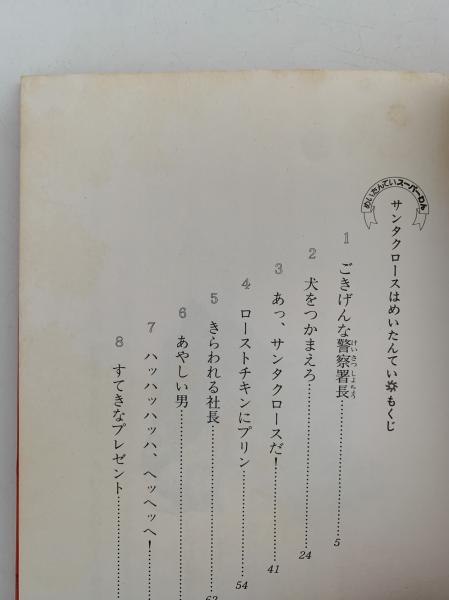 めいたんていスーパーわん
サンタクロースはめいたんてい ✹ もくじ
1 ごきげんな警察署長……………5
けいさつしょちょう
2 犬をつかまえろ……………24
3 あっ、サンタクロースだ！……………41
4 ローストチキンにプリン……………54
5 きらわれる社長……………63
6 あやしい男……………
7 ハッハッハッハ、ヘッヘッヘ！……………
8 すてきなプレゼント……………